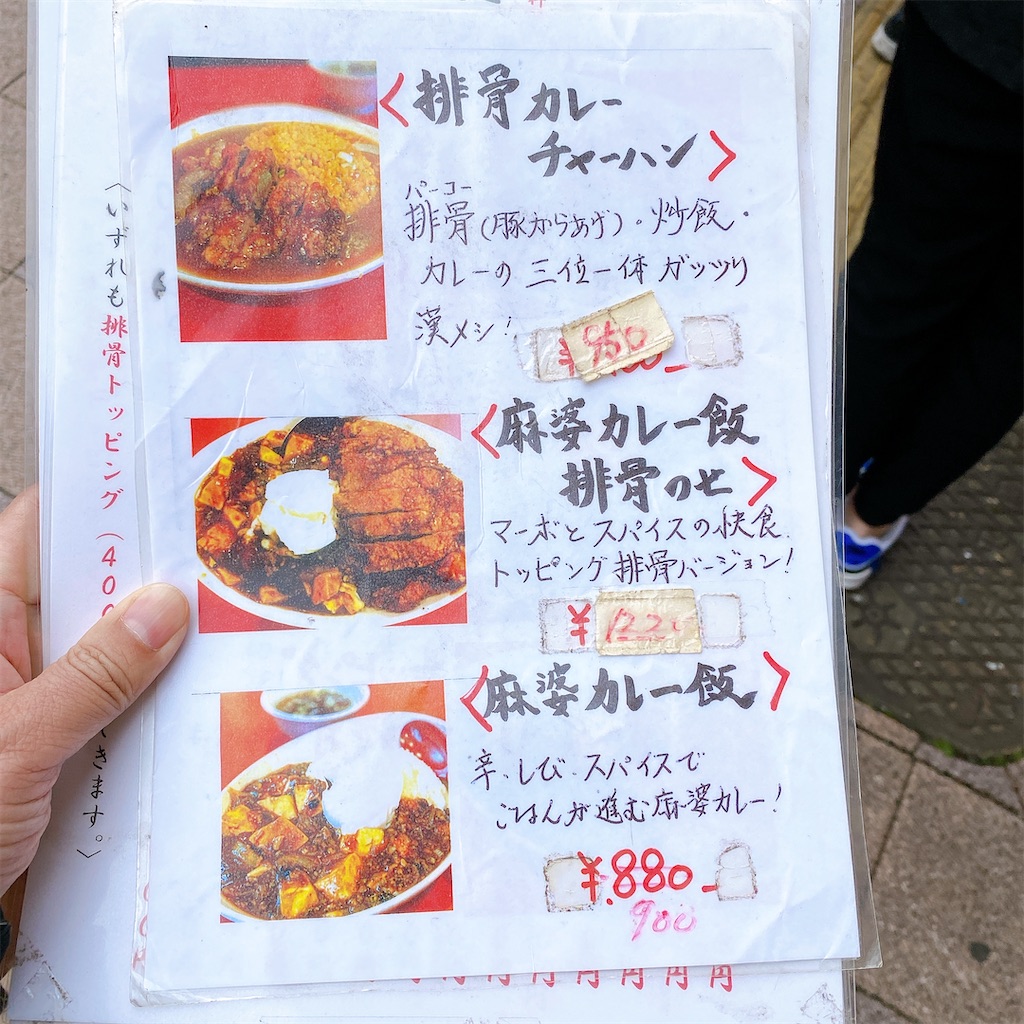 <排骨カレー
チャーハン>
パーコー
排骨(豚からあげ)・炒飯・
カレーの三位一体ガッツリ
漢メシ!
950
<麻婆カレー飯
排骨のせ>
マーボとスパイスの快食
トッピング排骨バージョン!
¥
<麻婆カレー飯>
辛・しび・スパイスで
ごはんが進む麻婆カレー!
¥880-
900
〈いずれも排骨トッピング(400
きます。〉
円円円円円円円